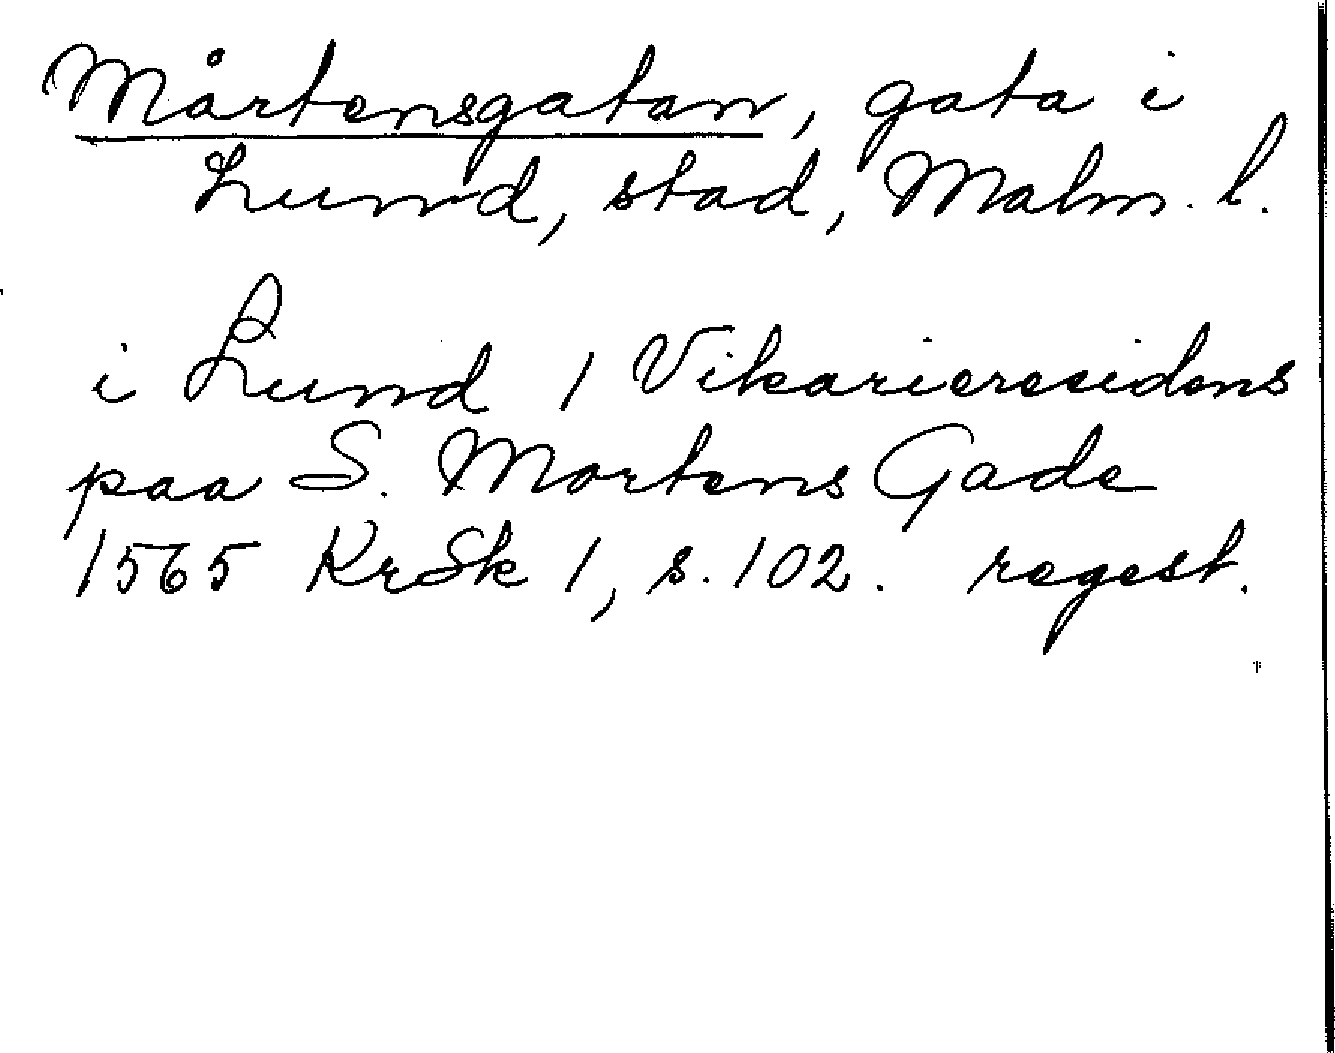 Mårtensgatan, gata i
Lund, stad, Malm. l.
i Lund 1 Vikarieresidens
paa S. Mortens Gade
1565 KrSk 1, s. 102. regest.